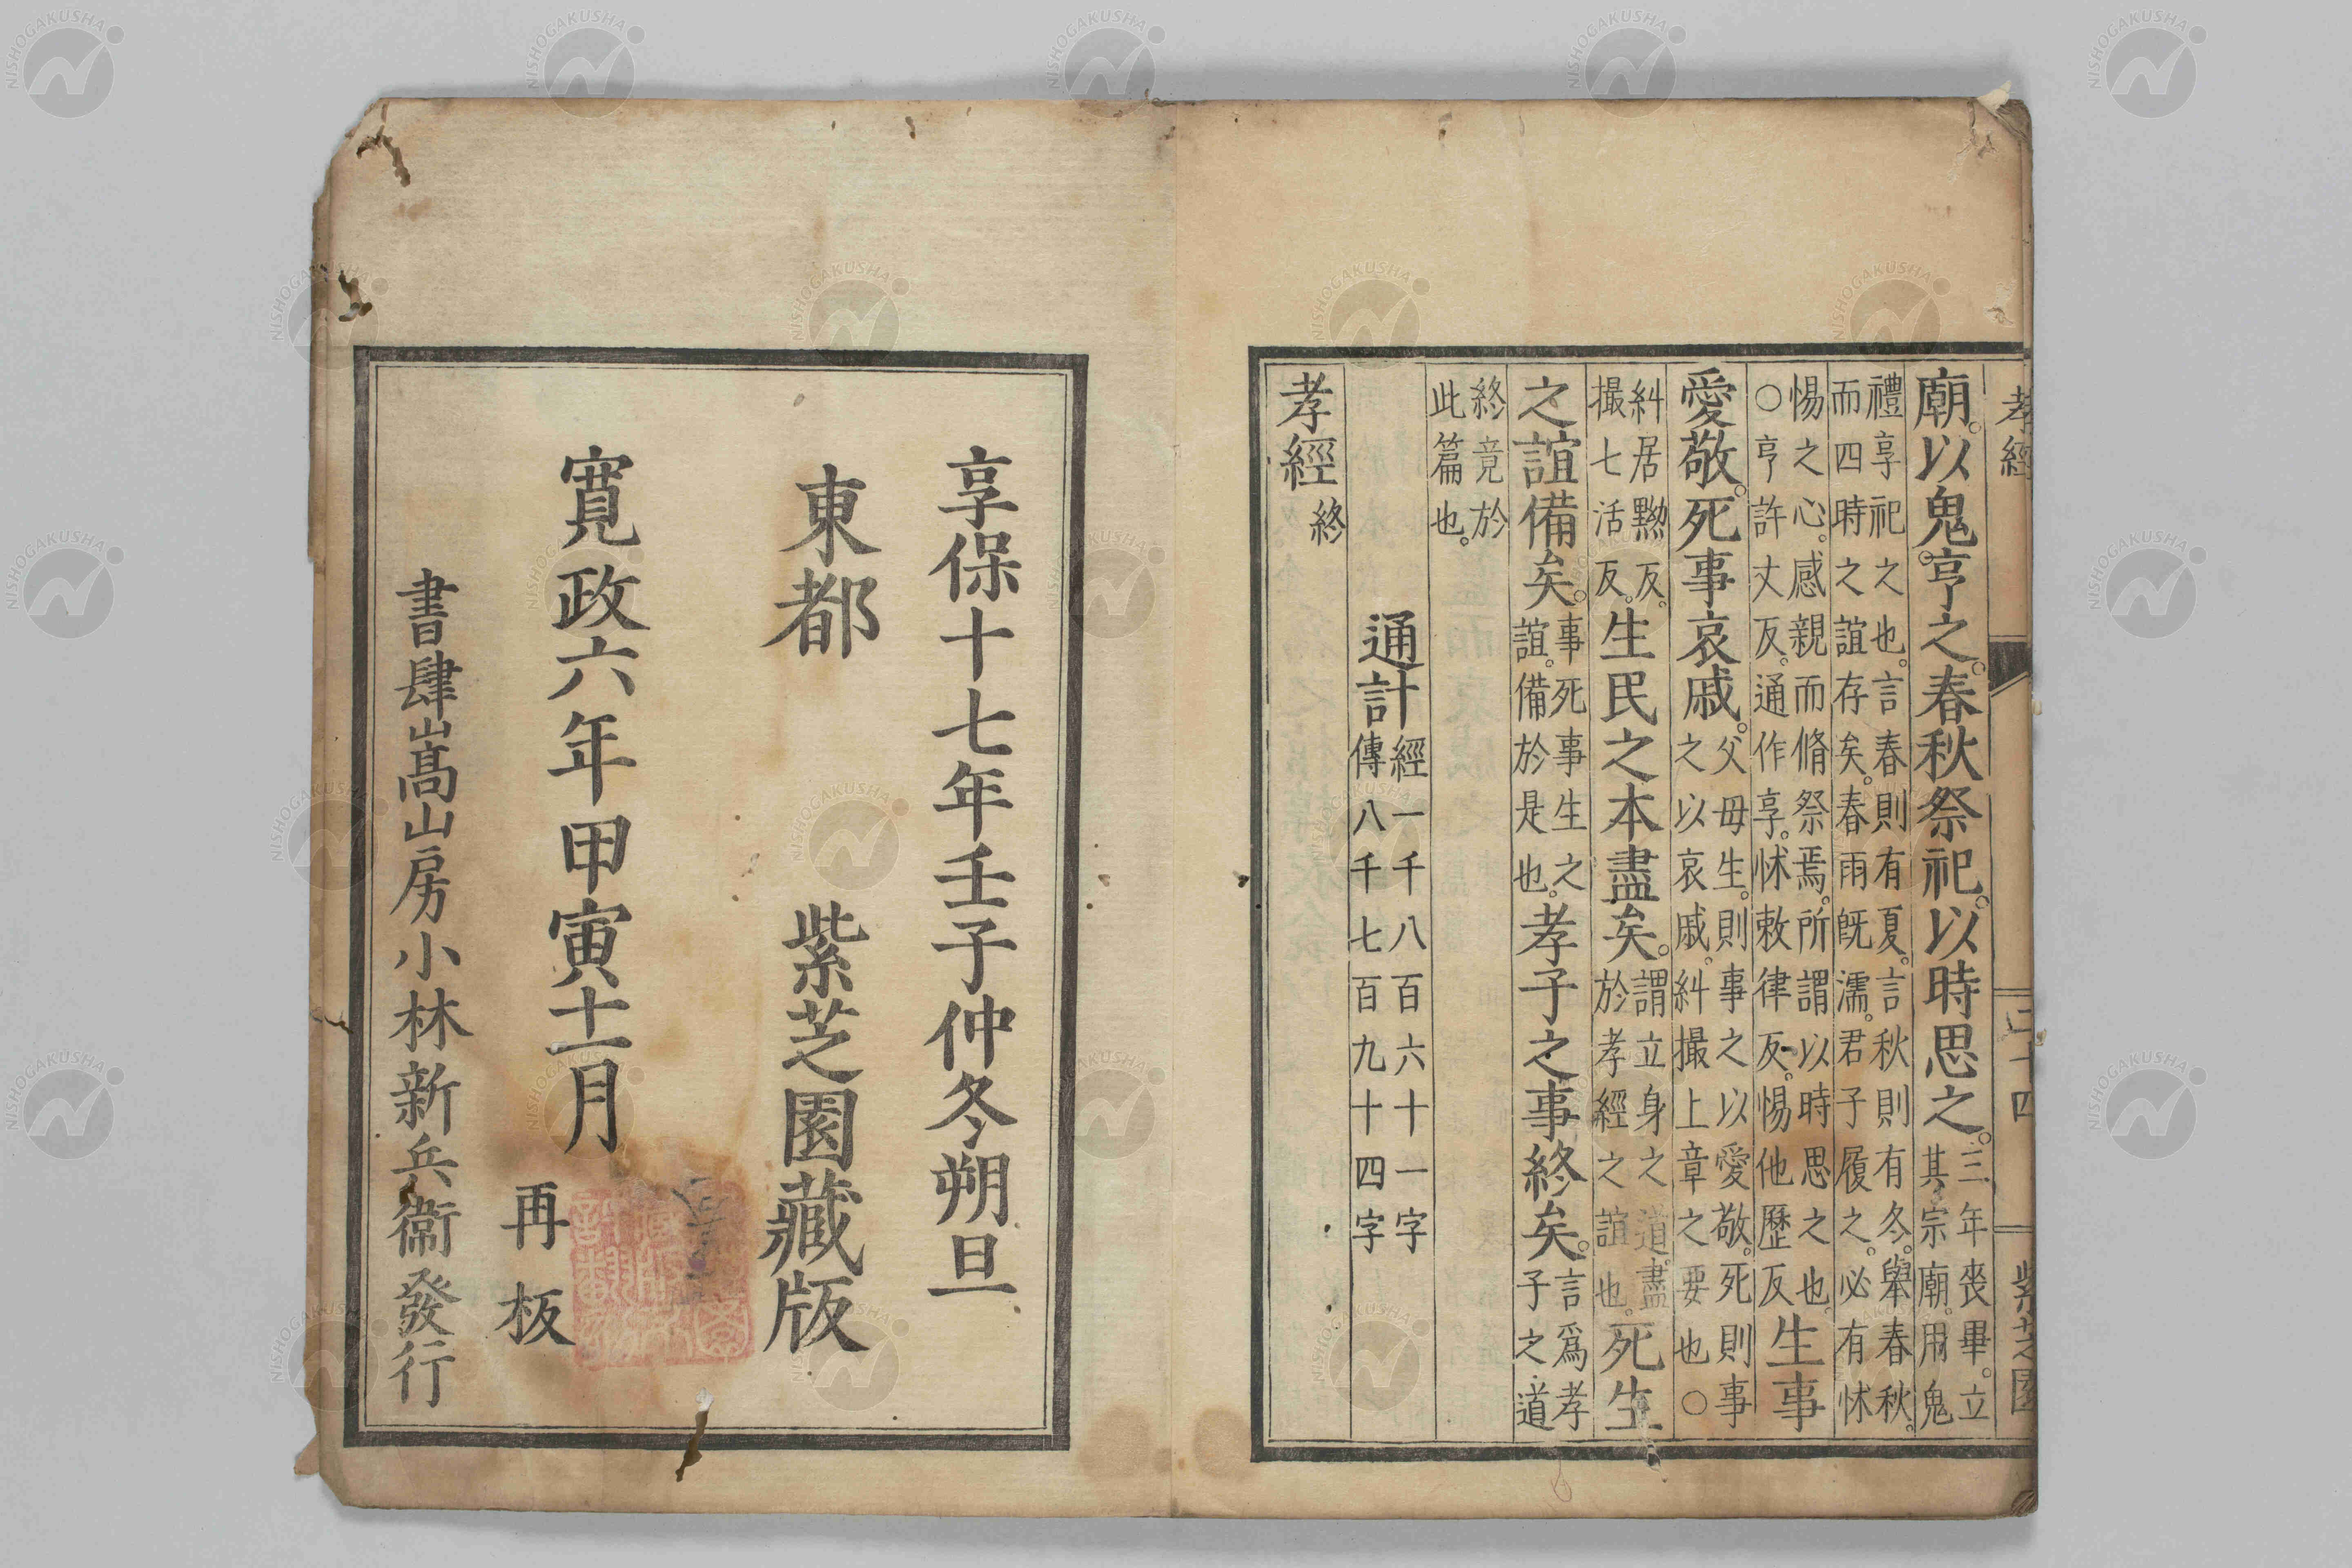 廟。以鬼亨之。春秋祭祀。以時思之。三年喪畢。立其宗廟。用鬼
禮享祀之也。言春則有夏。言秋則有冬。舉春秋。而四時之誼存矣。春雨既濡。君子履之。必有怵
惕之心。感親而脩祭焉。所謂以時思之也。○亨許丈反。通作享。怵敕律反。惕他歷反生事
愛敬。死事哀戚。父母生。則事之以愛敬。死則事之以哀戚。糾撮上章之要也○
糾居黝反。撮七活反。生民之本盡矣。謂立身之道。盡於孝經之誼也。死生
之誼備矣。事死事生之誼。備於是也。孝子之事終矣。言爲孝子之道
終竟於此篇也。
通計經一千八百六十一字傳八千七百九十四字
孝經終
孝經
二十四
紫芝園
享保十七年壬子仲冬朔旦
東都 紫芝園藏版
寛政六年甲寅十一月
再板
書肆嵩高山房小林新兵衞發行
NISHOGAKUSHA